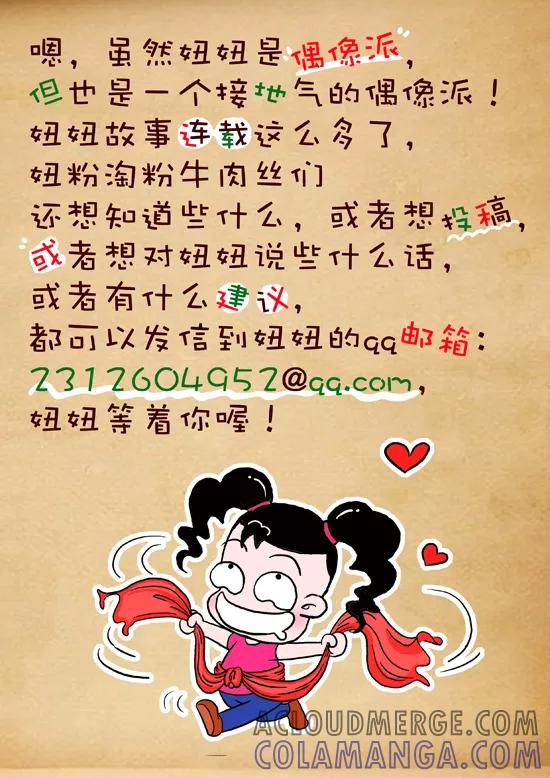 嗯，虽然妞妞是“偶像派”，
但也是一个接地气的偶像派！
妞妞故事连载这么多了，
妞粉淘粉牛肉丝们
还想知道些什么，或者想投稿，
或者想对妞妞说些什么话，
或者有什么建议，
都可以发信到妞妞的qq邮箱：
2312604952@qq.com，
妞妞等着你喔！
ACLOUDMERGE.COM
COLAMANGA.COM